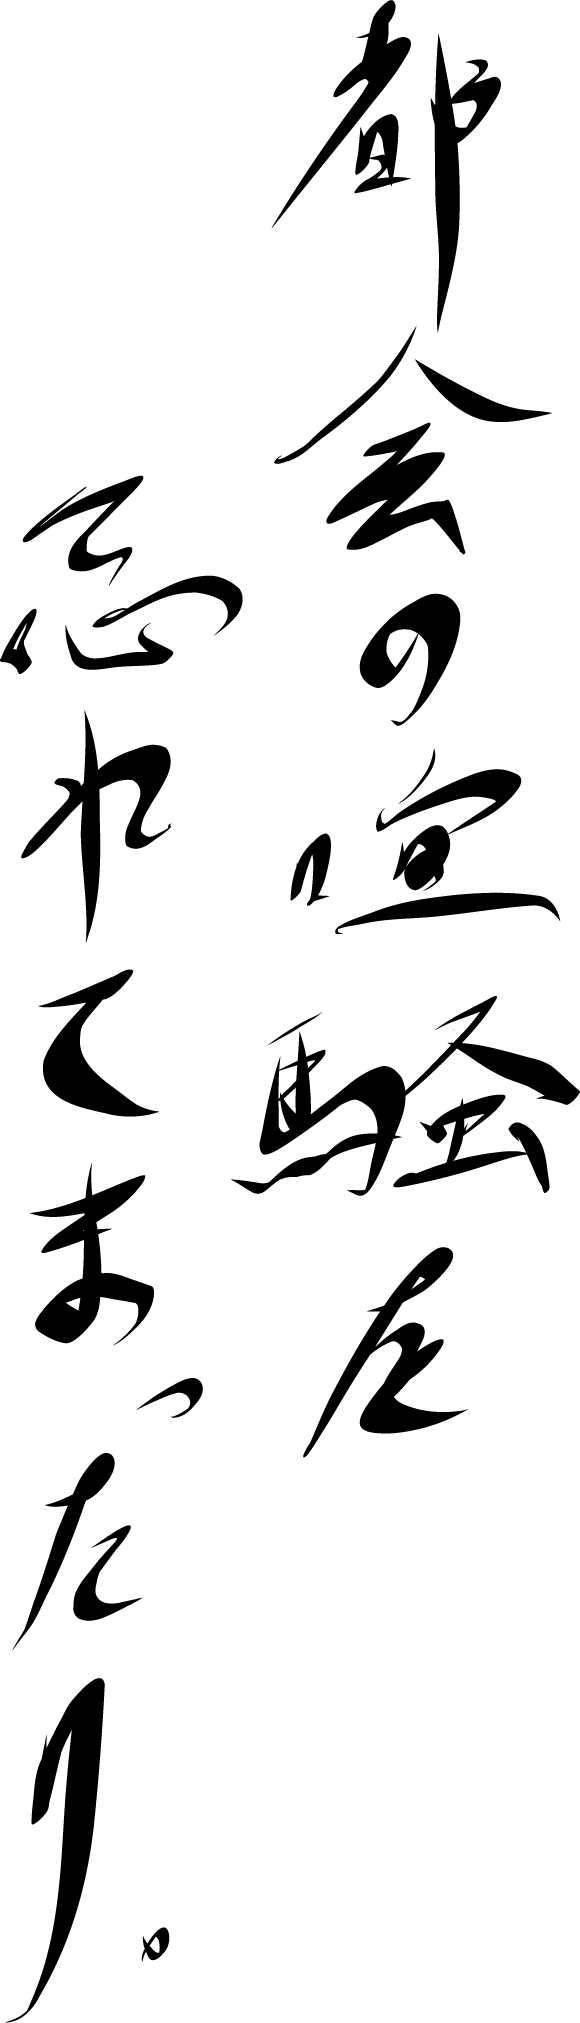 都会の喧騒を
忘れてまったり。